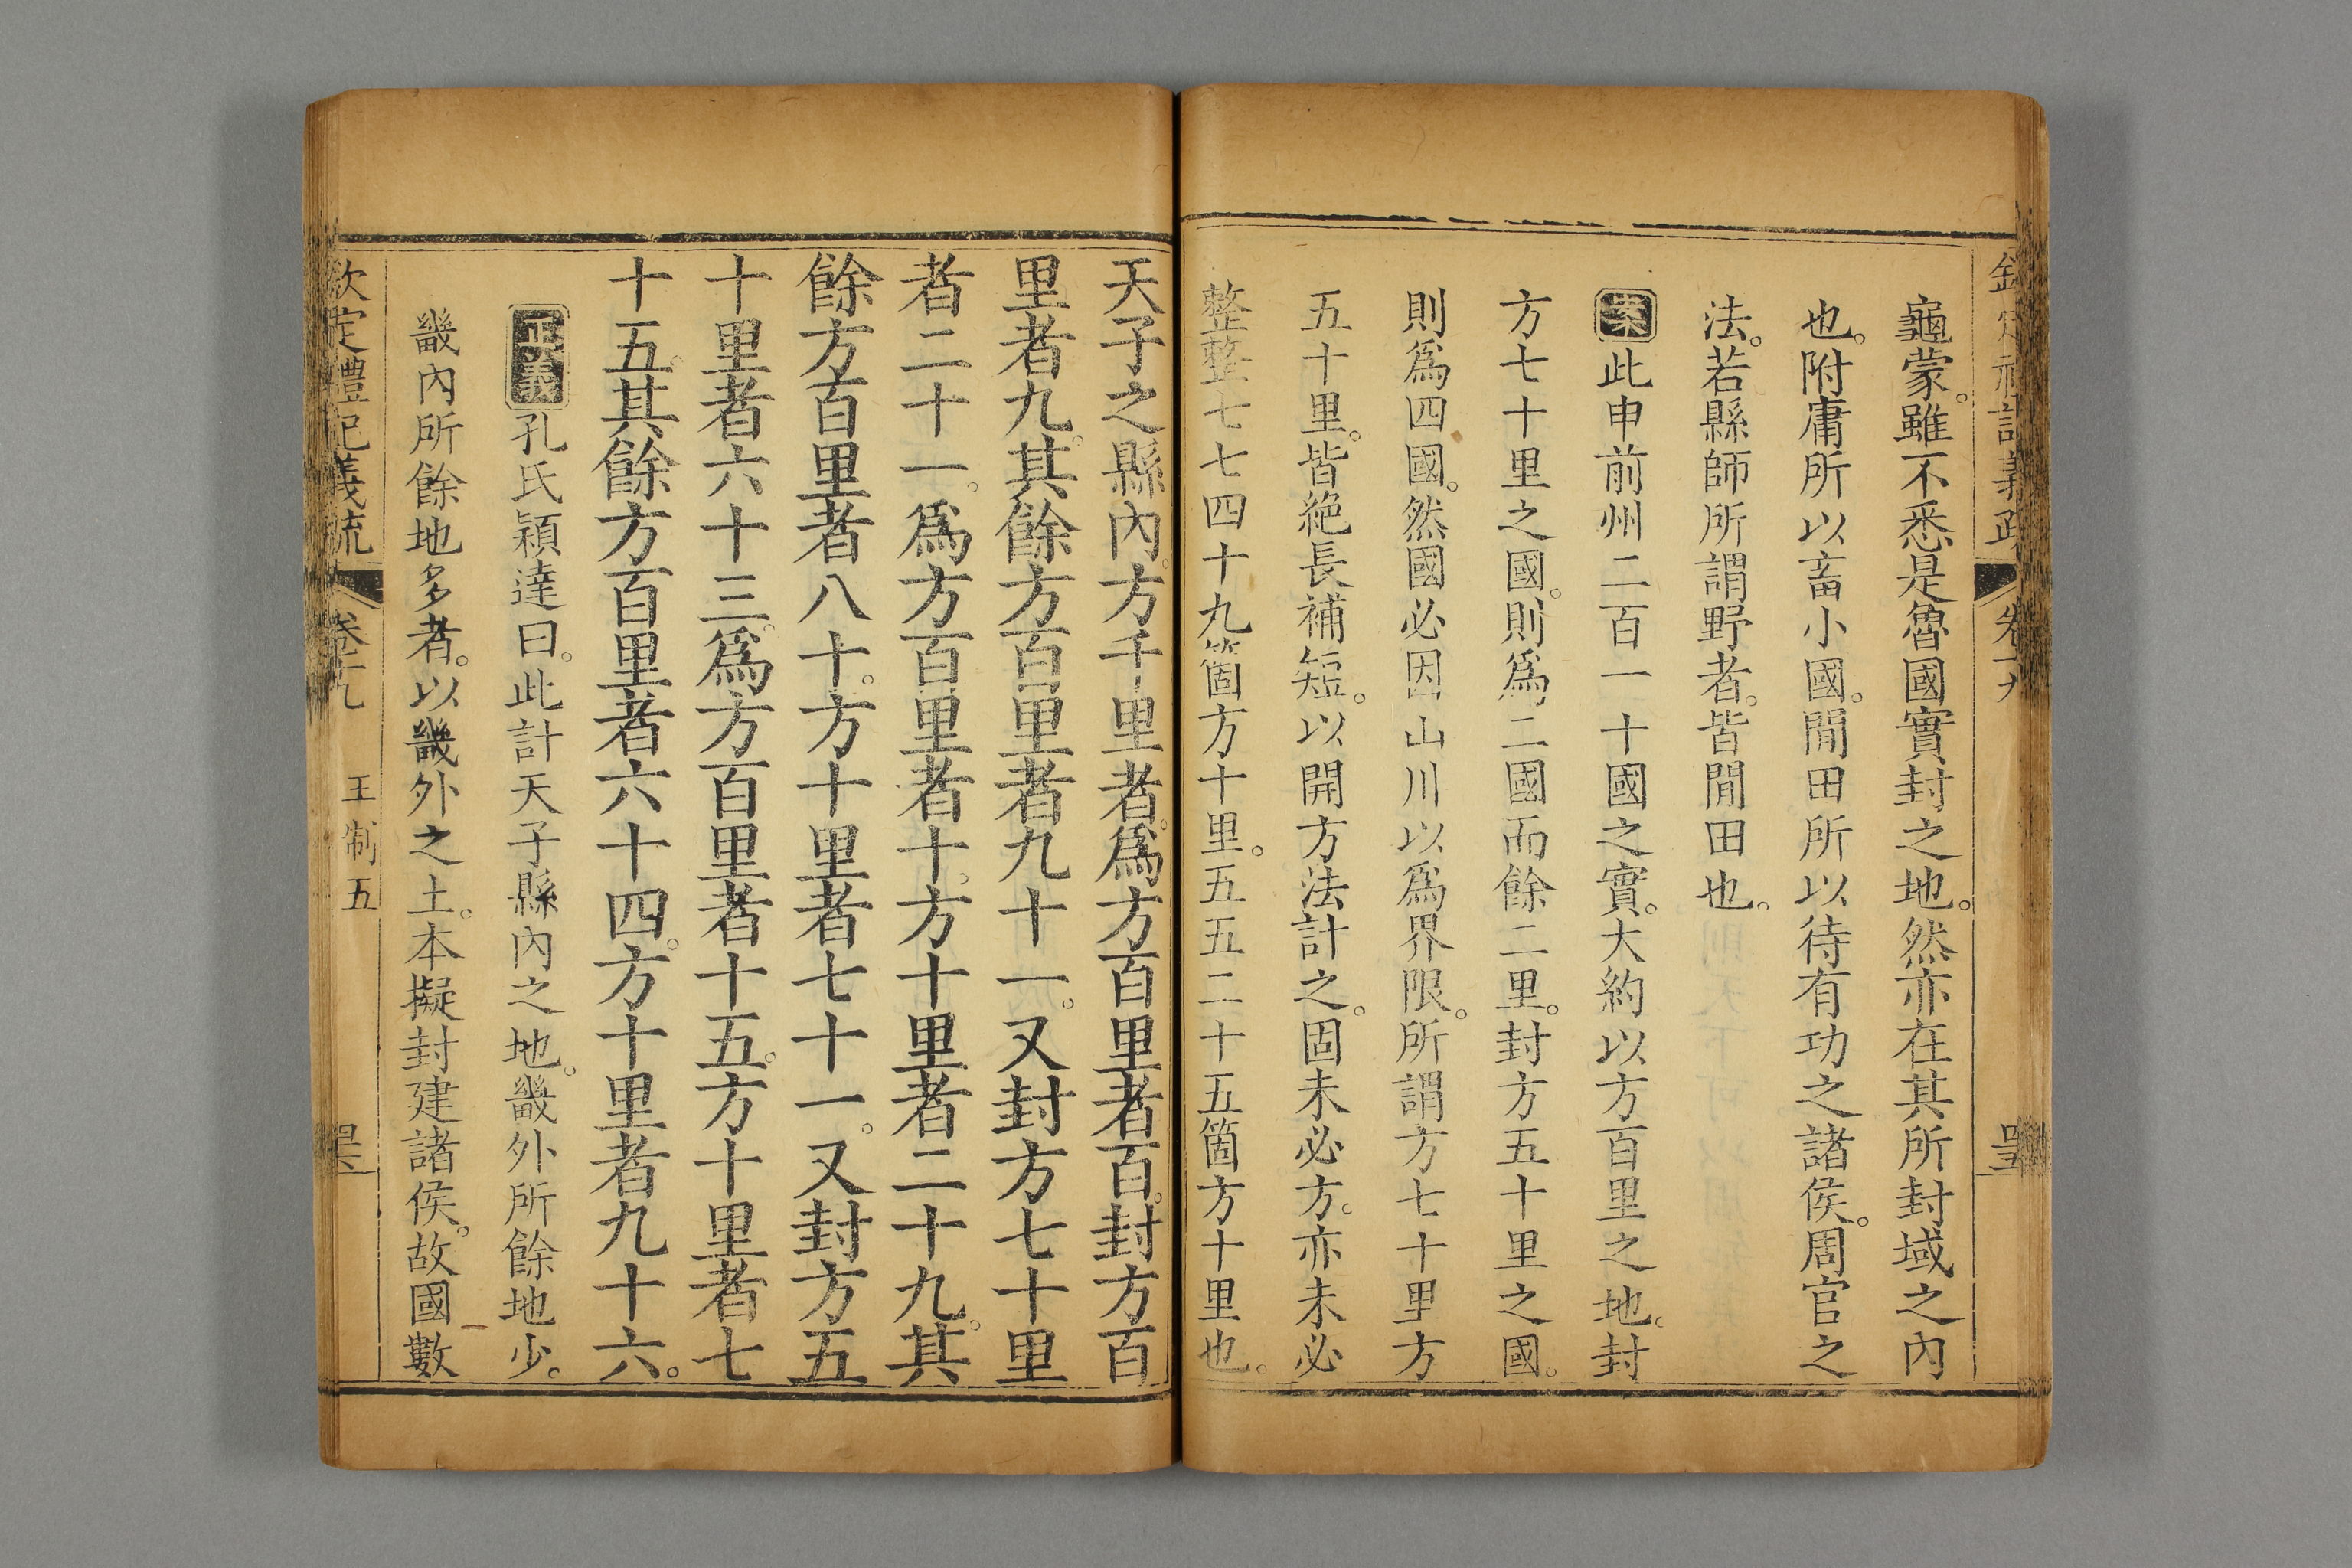 龜蒙。雖不悉是魯國實封之地。然亦在其所封域之內
也。附庸所以畜小國。閒田所以待有功之諸侯。周官之
法。若縣師所謂野者。皆閒田也。
案此申前州二百一十國之實。大約以方百里之地。封
方七十里之國。則爲二國而餘二里。封方五十里之國。
則爲四國。然國必因山川以爲界限。所謂方七十里方
五十里。皆絕長補短。以開方法計之。固未必方。亦未必
整整七七四十九箇方十里。五五二十五箇方十里也。
天子之縣內。方千里者。爲方百里者百。封方百
里者九。其餘方百里者九十一。又封方七十里
者二十一。爲方百里者十。方十里者二十九。其
餘方百里者八十。方十里者七十一。又封方五
十里者六十三。爲方百里者十五。方十里者七
十五。其餘方百里者六十四。方十里者九十六。
正義孔氏穎達曰。此計天子縣內之地。畿外所餘地少。
畿內所餘地多者。以畿外之土。本擬封建諸侯。故國數
欽定禮記義疏 卷十九 王制五